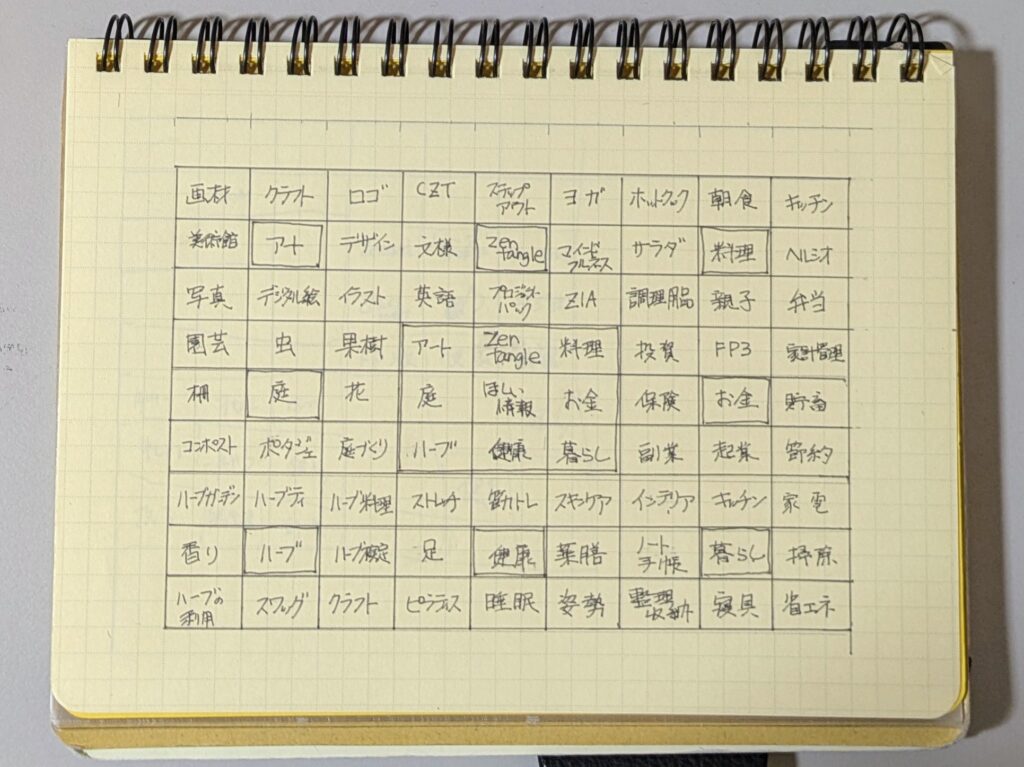 画材 クラフト ロゴ CZT ステップアウト ヨガ ホットクック 朝食 キッチン
美術館 アート デザイン 文様 Zentangle マインドフルネス サラダ 料理 ヘルシオ
写真 デジタル絵 イラスト 英語 プロジェクトパック ZIA 調理用品 親子 弁当
園芸 虫 果樹 アート Zentangle 料理 投資 FP3 家計管理
柵 庭 花 庭 ほしい情報 お金 保険 お金 貯畜
コンポスト ポタジェ 庭づくり ハーブ 健康 暮らし 副業 起業 節約
ハーブガーデン ハーブティ ハーブ料理 ストレッチ 筋力トレ スキンケア インテリア キッチン 家電
香り ハーブ ハーブ検定 足 健康 薬膳 ノート手帳 暮らし 掃除
ハーブの利用 スワッグ クラフト ピラティス 睡眠 姿勢 整理収納 寝具 省エネ